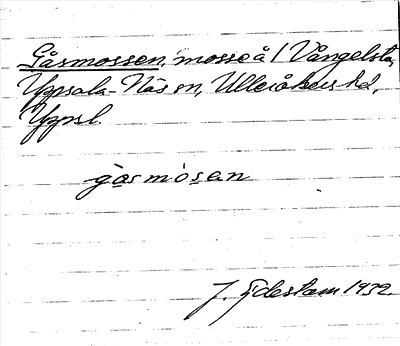 Gåsmossen, mosse å 1 Vångelsta,
Uppsala-Näs sn, Ulleråkers hd,
Uppsl.
gåsmosen
J. Ejdestam 1932.